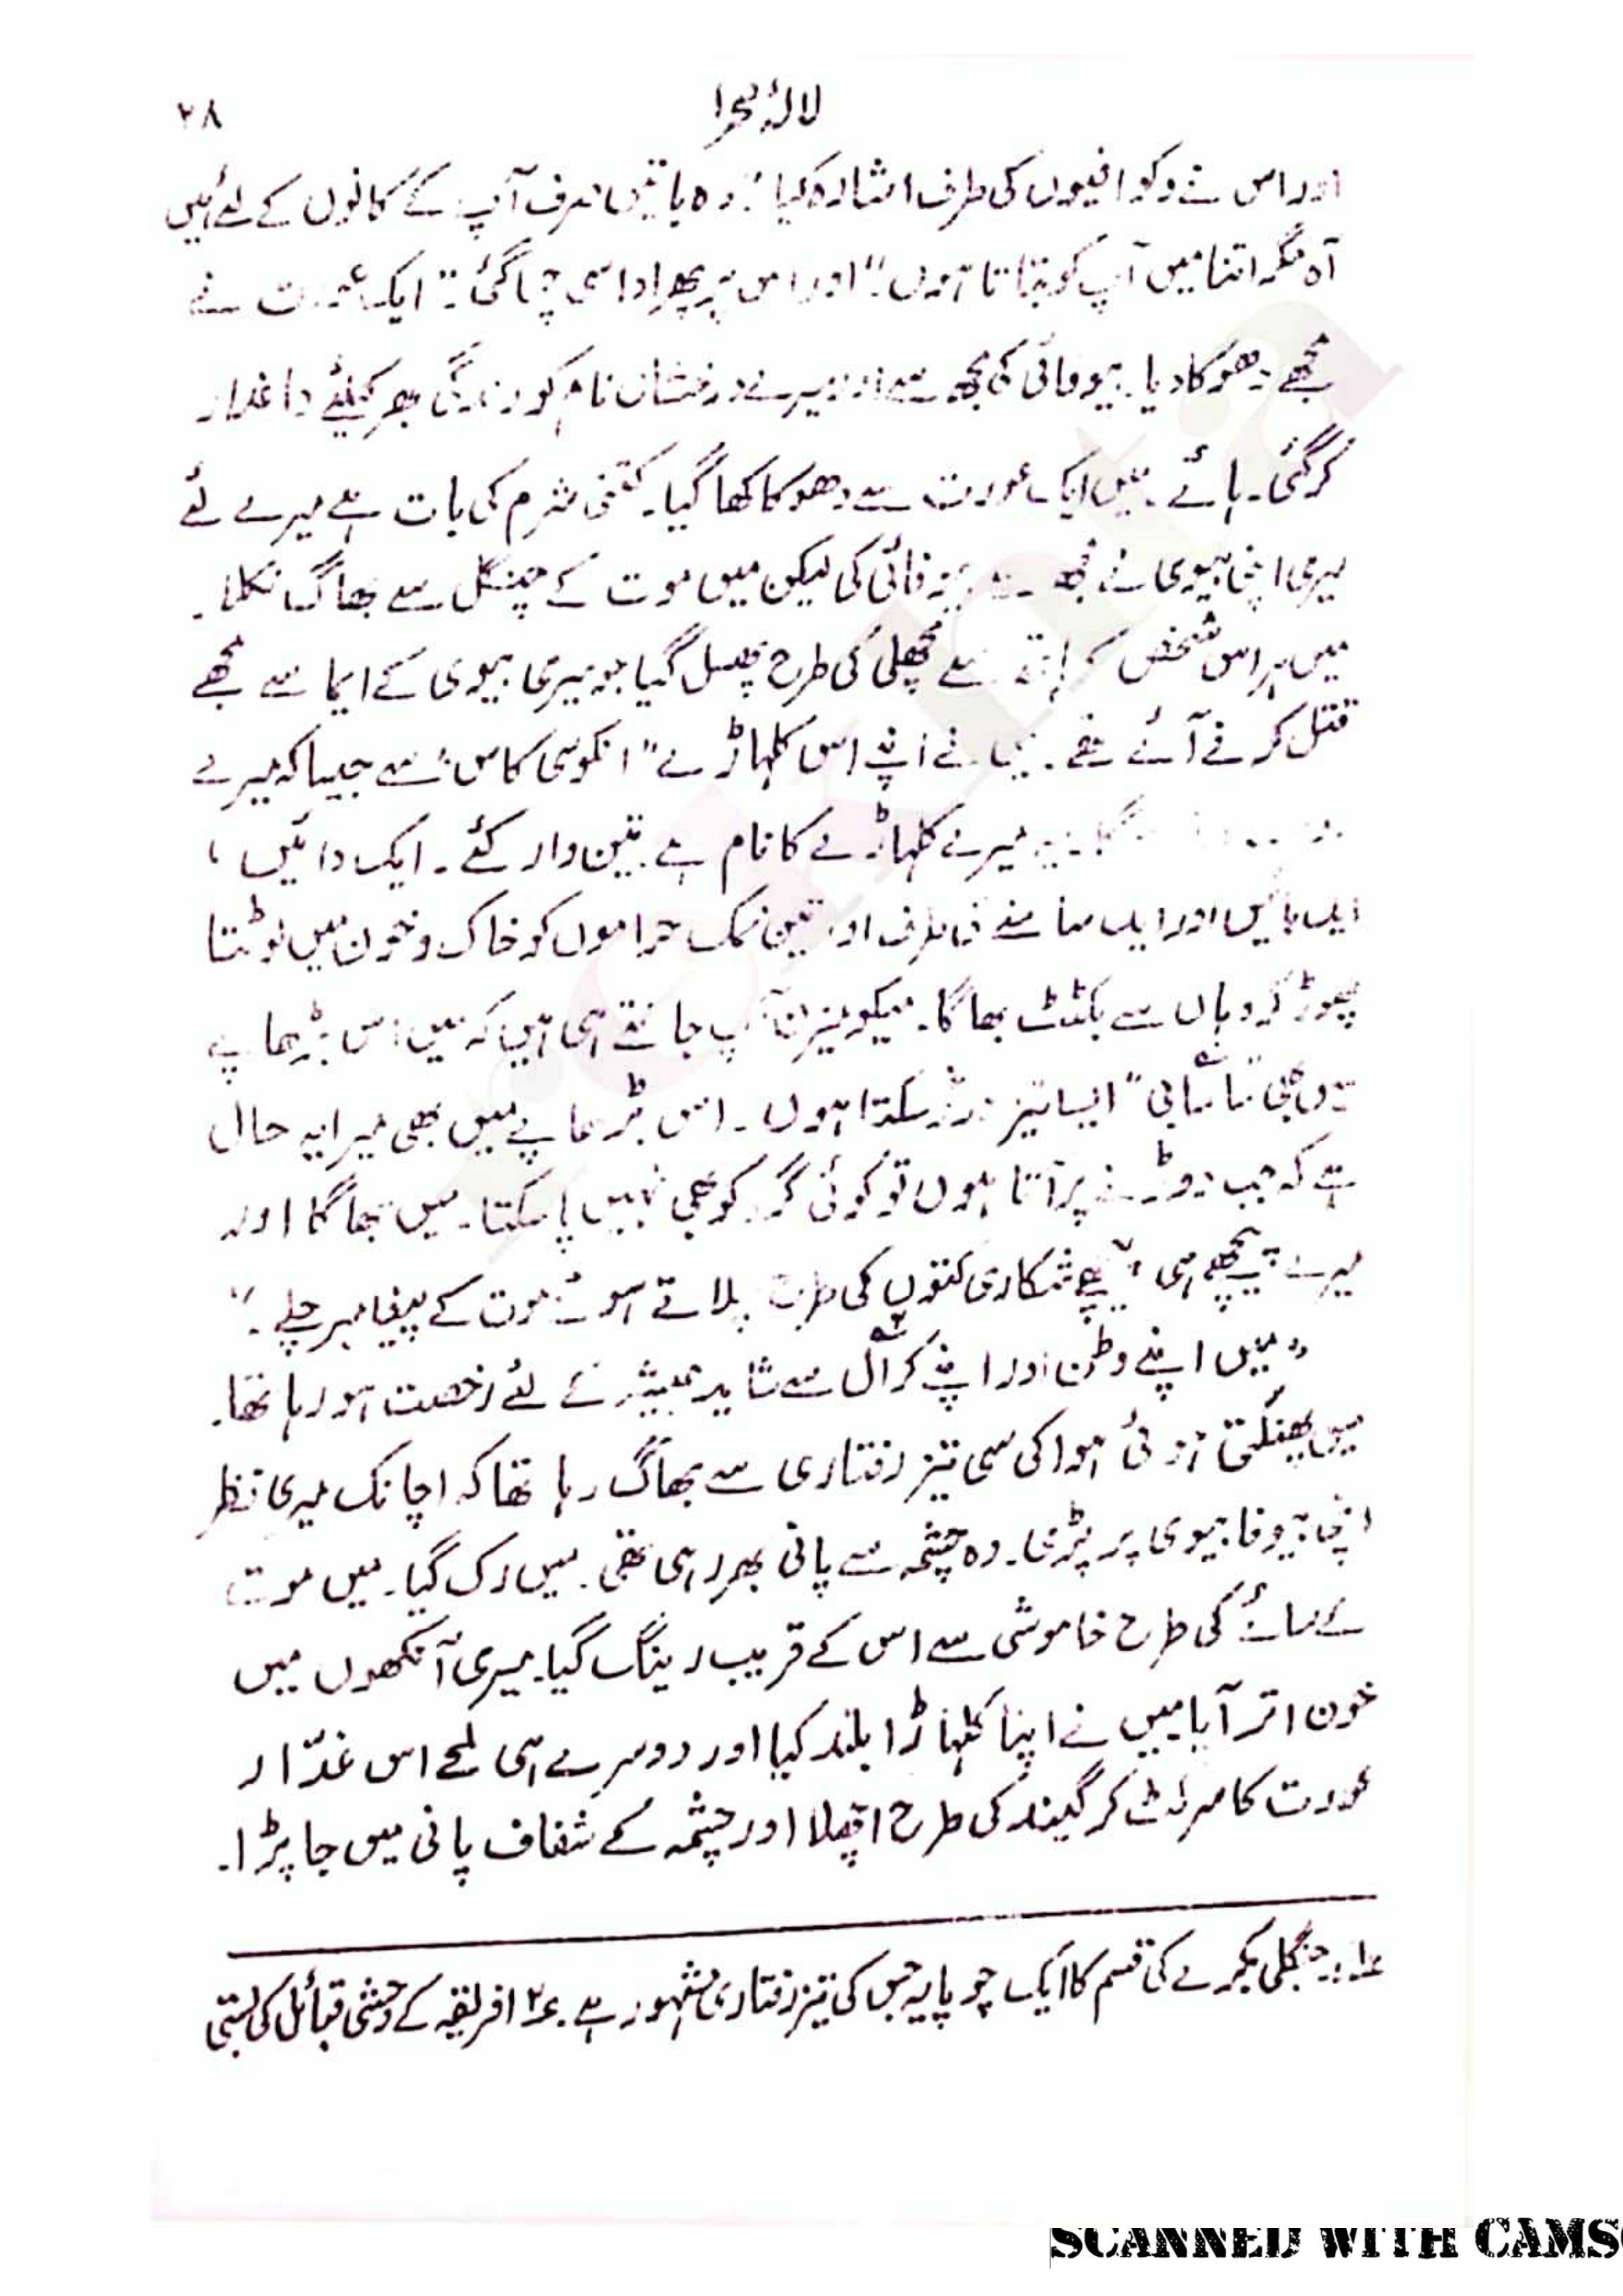 لالۂ صحرا
۲۸
اور اس نے وکوافیوں کی طرف اشارہ کیا "وہ باتیں صرف آپ کے کانوں کے لئے ہیں
آہ مگر اتنا میں آپ کو بتاتا ہوں" اور اس پر پھر اداسی چھا گئی۔ "ایک عورت نے
مجھے دھوکا دیا۔ بیوفائی کی مجھ سے اور میرے درخشاں نام کو زندگی بھر کیلئے داغدار
کر گئی۔ ہائے۔ میں ایک عورت سے دھوکا کھا گیا۔ کتنی شرم کی بات ہے میرے لئے
میری اپنی بیوی نے مجھ سے بیوفائی کی لیکن میں موت کے چنگل سے بھاگ نکلا۔
میں ہر اس شخص کے ہاتھ سے مچھلی کی طرح پھسل گیا جو میری بیوی کے ایما سے مجھے
قتل کرنے آئے تھے۔ میں نے اپنے اس کلہاڑے "انکوسی کاس" سے جیسا کہ میرے
میرے کلہاڑے کا نام ہے۔ تین وار کئے۔ ایک دائیں،
ایک بائیں اور ایک سامنے کی طرف اور تین نمک حراموں کو خاک و خون میں لوٹتا
چھوڑ کر وہاں سے بگٹٹ بھاگا۔ میکومیزن آپ جانتے ہی ہیں کہ میں اس بڑھاپے
میں بھی "ساسابی" ایسا تیز دوڑ سکتا ہوں۔ اس بڑھاپے میں بھی میرا یہ حال
ہے کہ جب دوڑنے پر آتا ہوں تو کوئی گرد کو بھی نہیں پا سکتا۔ میں بھاگا اور
میرے پیچھے ہی پیچھے شکاری کتوں کی طرح چلاتے ہوئے موت کے پیغامبر چلے۔"
"میں اپنے وطن اور اپنے کرال۲ سے شاید ہمیشہ کے لئے رخصت ہو رہا تھا۔
میں پھنکتی ہوئی ہوا کی سی تیز رفتاری سے بھاگ رہا تھا کہ اچانک میری نظر
اپنی بیوفا بیوی پر پڑی۔ وہ چشمہ سے پانی بھر رہی تھی۔ میں رک گیا۔ میں موت
کے سائے کی طرح خاموشی سے اس کے قریب رینگ گیا۔ میری آنکھوں میں
خون اتر آیا میں نے اپنا کلہاڑا بلند کیا اور دوسرے ہی لمحے اس غدّار
عورت کا سر کٹ کر گیند کی طرح اچھلا اور چشمہ کے شفاف پانی میں جا پڑا۔
۱؎ :۔ جنگلی بکرے کی قسم کا ایک چوپایہ جس کی تیز رفتاری مشہور ہے۔ ۲؎ افریقہ کے وحشی قبائل کی بستی
SCANNED WITH CAMS